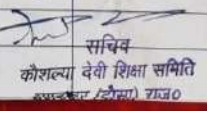 सचिव
कौशल्या देवी शिक्षा समिति
(दौसा) राज०